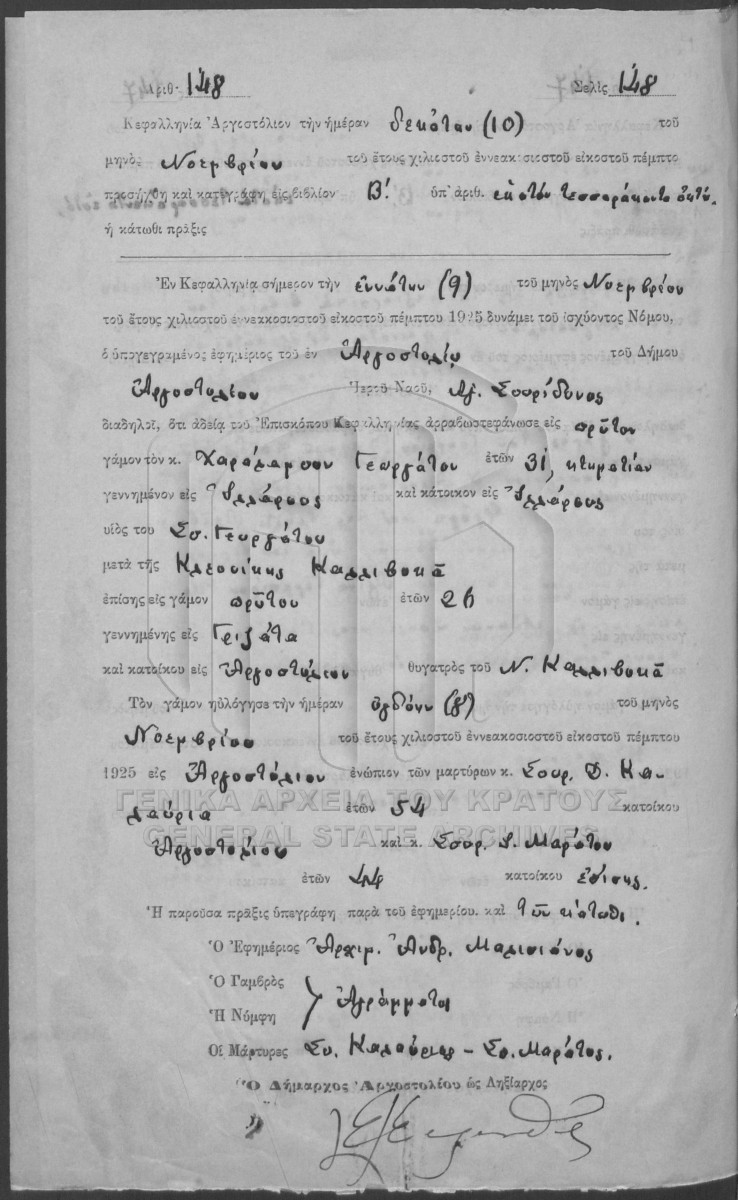 Ἀριθ. 148 Σελὶς 148
Κεφαλληνία Ἀργοστόλιον τὴν ἡμέραν δεκάτην (10) τοῦ
μηνὸς Νοεμβρίου τοῦ ἔτους χιλιοστοῦ ἐννεακοσιοστοῦ εἰκοστοῦ πέμπτο
προσήχθη καὶ κατεγράφη εἰς βιβλίον Β΄. ὑπ' ἀριθ. ἑκατὸν τεσσαράκοντα ὀκτώ.
ἡ κάτωθι πρᾶξις
Ἐν Κεφαλληνίᾳ σήμερον τὴν ἐννάτην (9) τοῦ μηνὸς Νοεμβρίου
τοῦ ἔτους χιλιοστοῦ ἐννεακοσιοστοῦ εἰκοστοῦ πέμπτου 1925 δυνάμει τοῦ ἰσχύοντος Νόμου,
ὁ ὑπογεγραμένος ἐφημέριος τοῦ ἐν Ἀργοστολίῳ τοῦ Δήμου
Ἀργοστολίου Ἱεροῦ Ναοῦ, Ἁγ. Σπυρίδωνος
διαδηλοῖ, ὅτι ἀδείᾳ τοῦ Ἐπισκόπου Κεφαλληνίας ἀρραβωστεφάνωσε εἰς πρῶτον
γάμον τὸν κ. Χαράλαμπον Γεωργάτον ἐτῶν 31, κτηματίαν
γεννημένον εἰς Ἰλλάρους καὶ κάτοικον εἰς Ἰλλάρους
υἱὸς του Σπ. Γεωργάτου
μετὰ τῆς Κλεονίκης Καλλιβοκᾶ
ἐπίσης εἰς γάμον πρῶτον ἐτῶν 26
γεννημένης εἰς Γριζάτα
καὶ κατοίκου εἰς Ἀργοστόλιον θυγατρὸς τοῦ Ν. Καλλιβοκᾶ
Τὸν γάμον ηὐλόγησε τὴν ἡμέραν ὀγδόην (8) τοῦ μηνὸς
Νοεμβρίου τοῦ ἔτους χιλιοστοῦ ἐννεακοσιοστοῦ εἰκοστοῦ πέμπτου
1925 εἰς Ἀργοστόλιον ἐνώπιον τῶν μαρτύρων κ. Σπυρ. Δ. Κα-
ΓΕΝΙΚΑ ΑΡΧΕΙΑ ΤΟΥ ΚΡΑΤΟΥΣ
λαύρια ἐτῶν 54 κατοίκου
GENERAL STATE ARCHIVES
Ἀργοστολίου καὶ κ. Σπυρ. Μαράτου
ἐτῶν 44 κατοίκου ἐπίσης.
Ἡ παροῦσα πρᾶξις ὑπεγράφη παρὰ τοῦ ἐφημερίου. καὶ τῶν κάτωθι.
Ὁ Ἐφημέριος Ἀρχιμ. Ἀνδρ. Μαλισιάνος
Ὁ Γαμβρὸς
Ἀγράμματοι
Ἡ Νύμφη
Οἱ Μάρτυρες Σπ. Καλαύριας - Σπ. Μαράτος.
Ὁ Δήμαρχος Ἀργοστολίου ὡς Ληξίαρχος